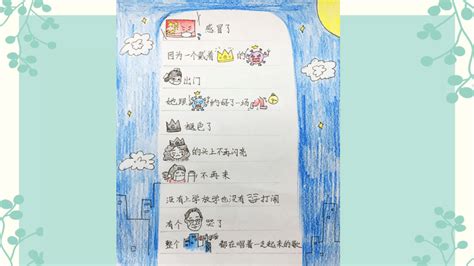 感冒了
因为一个戴着 的
出门
她跟 约好了一场
褪色了
的头上不再闪亮
不再来
没有上学放学也没有 打闹
有个 哭了
整个 都在唱着一走起来的歌